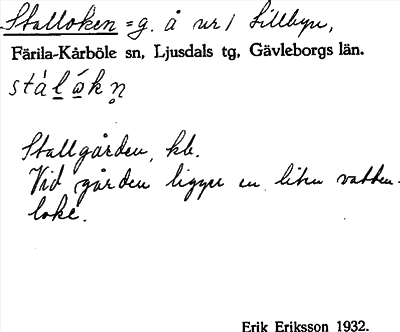 Stalloken = g. å nr 1 Lillbyn,
Färila-Kårböle sn, Ljusdals tg, Gävleborgs län.
stálǻkn̥
Stallgården, kb.
Vid gården ligger en liten vatten-
loke.
Erik Eriksson 1932.